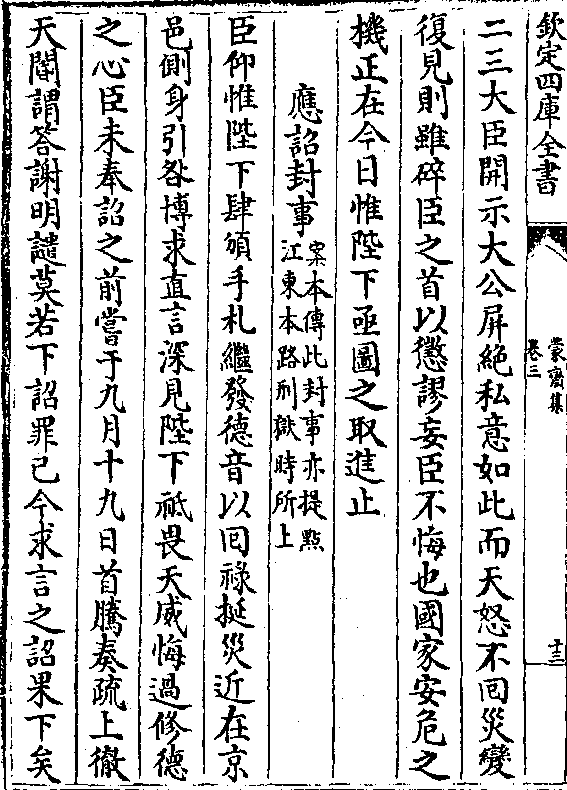 欽定四庫全書
蒙齋集
卷三
十三
二三大臣開示大公屏絶私意如此而天怒不回災變
復見則雖碎臣之首以懲謬妄臣不悔也國家安危之
機正在今日惟陛下亟圖之取進止
應詔封事
案本傳此封事亦提㸃
江東本路刑獄時所上
臣仰惟陛下肆頒手札繼發德音以囘祿挻災近在京
邑側身引咎博求直言深見陛下祗畏天威悔過修德
之心臣未奉詔之前嘗于九月十九日首騰奏疏上徹
天閽謂答謝明譴莫若下詔罪己今求言之詔果下矣